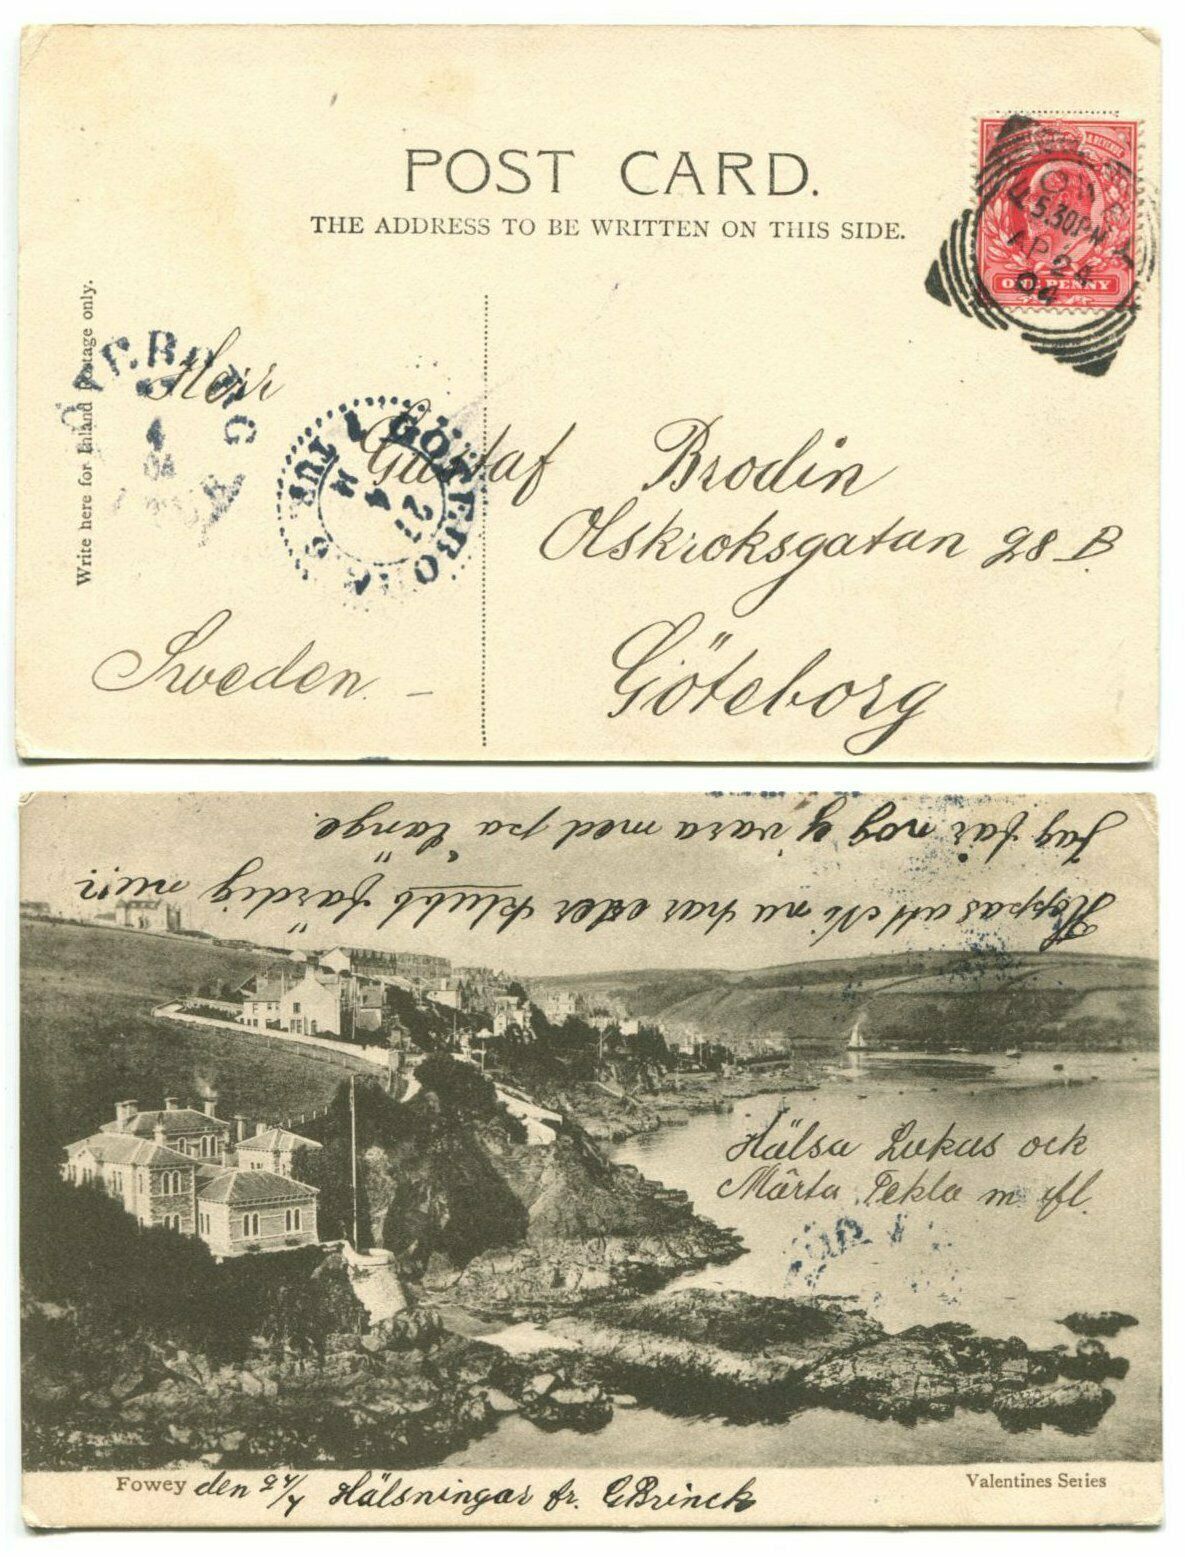 POST CARD.
THE ADDRESS TO BE WRITTEN ON THIS SIDE.
Write here for Inland Postage only.
FOWEY
5.30PM
AP 24
04
ONE PENNY
GÖTEBORG
GÖTEBORG 1 TUR
27
4
Herr
Gustaf Brodin
Olskroksgatan 28 B.
Göteborg
Sweden. –
Hoppas att Ni nu har eder klubb färdig nu!?
Jag får nog ej vara med på länge.
Hälsa Lukas och
Märta, Tekla m. fl.
TUR 1
Fowey den 24/4 Hälsningar fr. GBrinck
Valentines Series